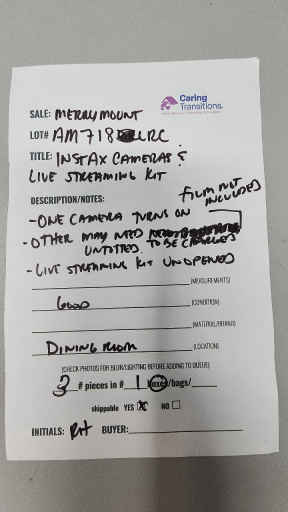 Caring
Transitions
SALE: MERRYMOUNT
LOT# AM718 LRC
TITLE: INSTAX CAMERAS &
LIVE STREAMING KIT
DESCRIPTION/NOTES:
FILM NOT
INCLUDED
- ONE CAMERA TURNS ON
- OTHER MAY NEED
UNTESTED TO BE CHARGED
- LIVE STREAMING KIT UNOPENED
(MEASUREMENTS)
GOOD (CONDITION)
(MATERIAL/BRAND)
DINING ROOM (LOCATION)
(CHECK PHOTOS FOR BLUR/LIGHTING BEFORE ADDING TO QUEUE)
3 # pieces in # 1 boxes/bags/
shippable YES X NO
INITIALS: RH BUYER: